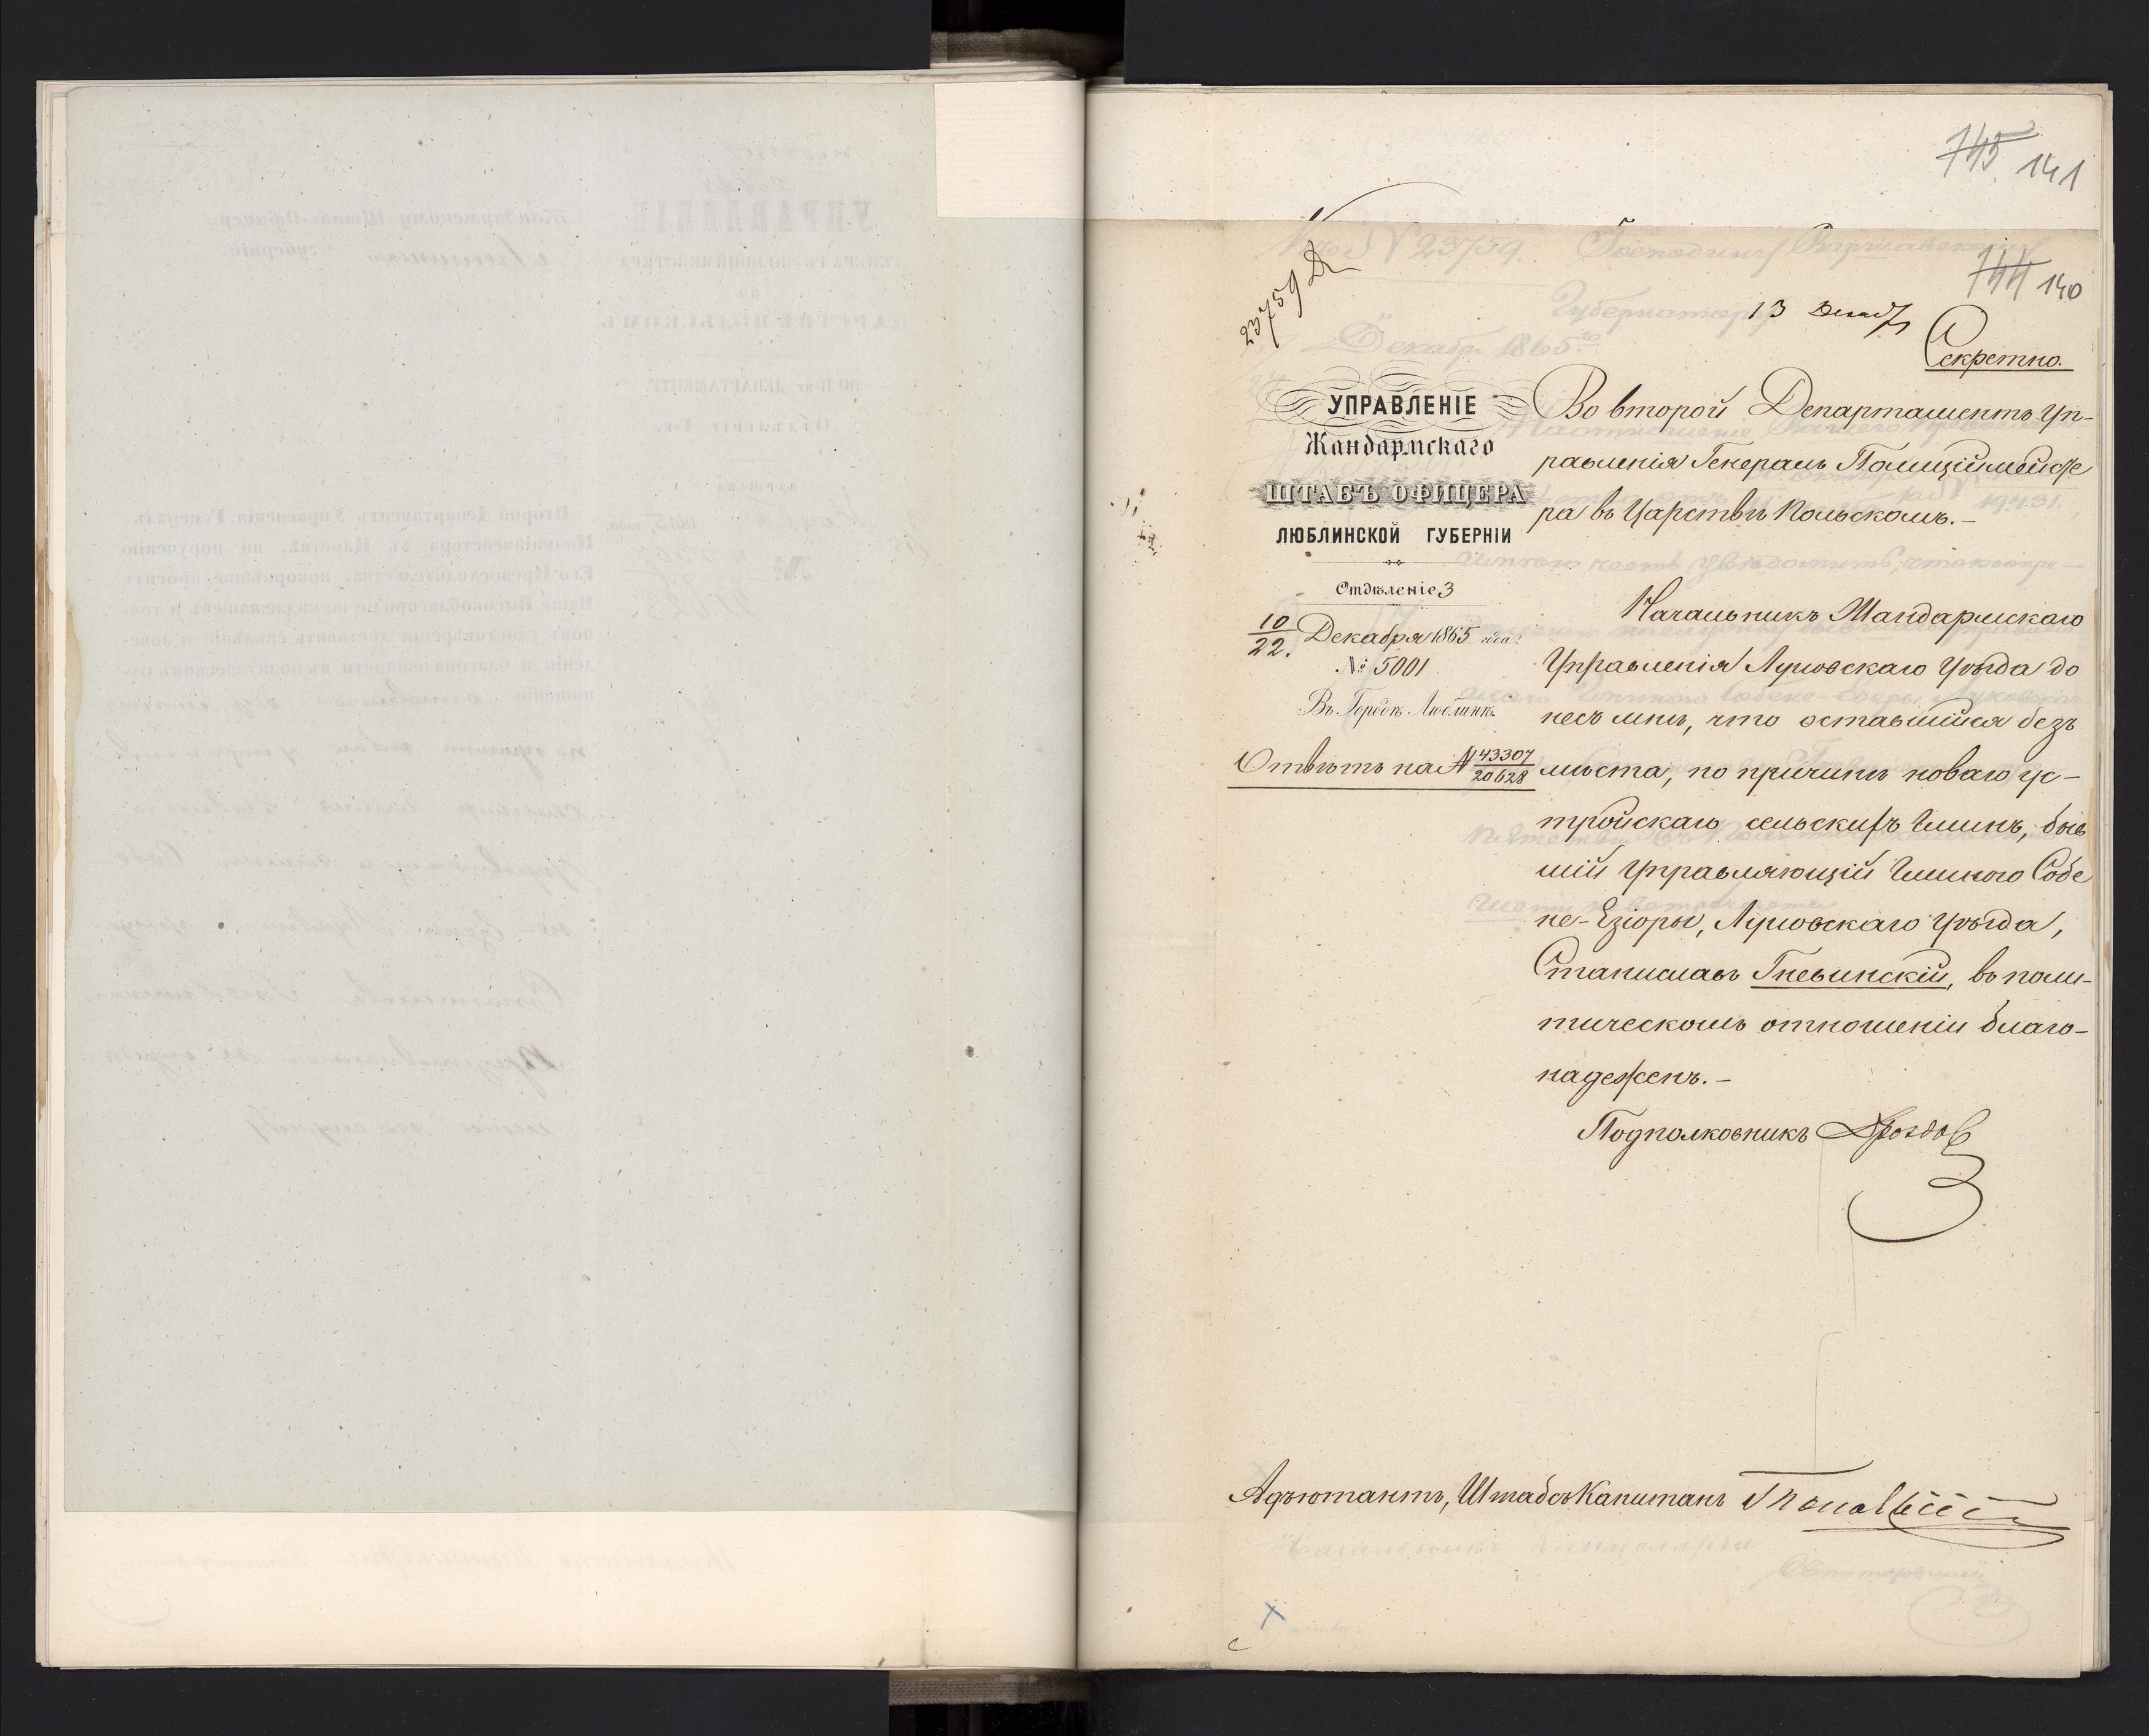 745 141
744 140
23759
13 Декаб
Секретно.
УПРАВЛЕНІЕ
Жандармскаго
ШТАБЪ ОФИЦЕРА
ЛЮБЛИНСКОЙ ГУБЕРНІИ
Отдѣленіе 3
10/22. Декабря 1865 года.
№ 5001
Въ Городѣ Люблинѣ.
Отвѣтъ на № 43307/20628
Во второй Департаментъ Уп-
равленія Генералъ Полиціймейсте
ра въ Царствѣ Польскомъ.–
Начальникъ Жандармскаго
Управленія Луковскаго Уѣзда до
несъ мнѣ, что оставшійся безъ
мѣста, по причинѣ новаго ус-
тройскаго сельскихъ Гминъ, быв
шій Управляющій Гминою Собе
не-Езіоры, Луковскаго Уѣзда,
Станиславъ Гневинскій, въ поли-
тическомъ отношеніи благо-
надеженъ.–
Подполковникъ Дроздов
Адъютантъ, Штабсъ Капитанъ